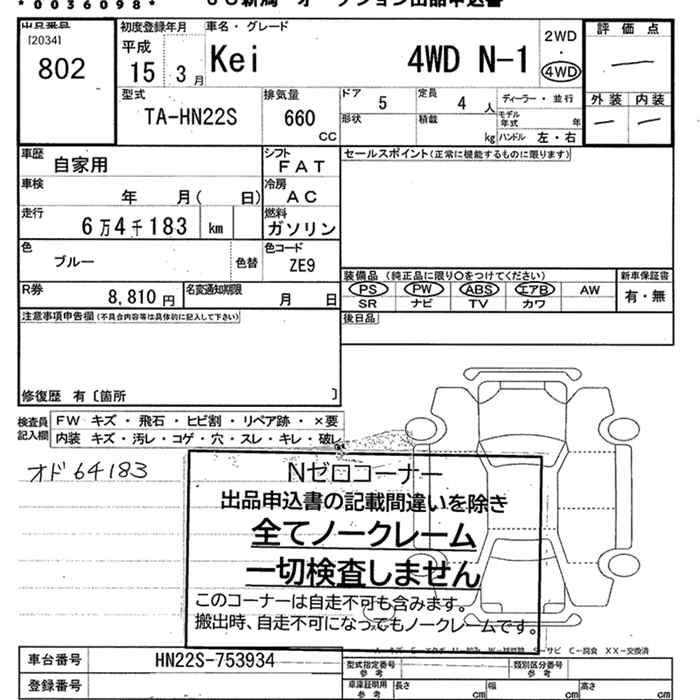 *0036098*
出品番号
[2034]
802
初度登録年月
平成
15 3 月
車名・グレード
Kei 4WD N-1
2WD
・
4WD
評価点
外装 内装
型式
TA-HN22S
排気量
660 CC
ドア 5
定員 4 人
形状
積載 kg
ディーラー・並行
モデル年式 年
ハンドル 左・右
車歴 自家用
シフト FAT
セールスポイント(正常に機能するものに限ります)
車検 年 月( 日)
冷房 AC
走行 6万4千183 km
燃料 ガソリン
色 ブルー 色替
色コード ZE9
装備品 (純正品に限り○をつけてください)
新車保証書
PS PW ABS エアB AW
有・無
SR ナビ TV カワ
R券 8,810 円
名変通知期限 月 日
注意事項申告欄(不具合内容等は具体的に記入して下さい)
後日品
修復歴 有〔箇所 〕
検査員記入欄
FW キズ・飛石・ヒビ割・リペア跡・×要
内装 キズ・汚レ・コゲ・穴・スレ・キレ・破レ
オド 64183
Nゼロコーナー
出品申込書の記載間違いを除き
全てノークレーム
一切検査しません
このコーナーは自走不可も含みます。
搬出時、自走不可になってもノークレームです。
XX-交換済
車台番号 HN22S-753934
登録番号
型式指定番号 参考
類別区分番号 参考
車庫証明用 参考
長さ cm
幅 cm
高さ cm